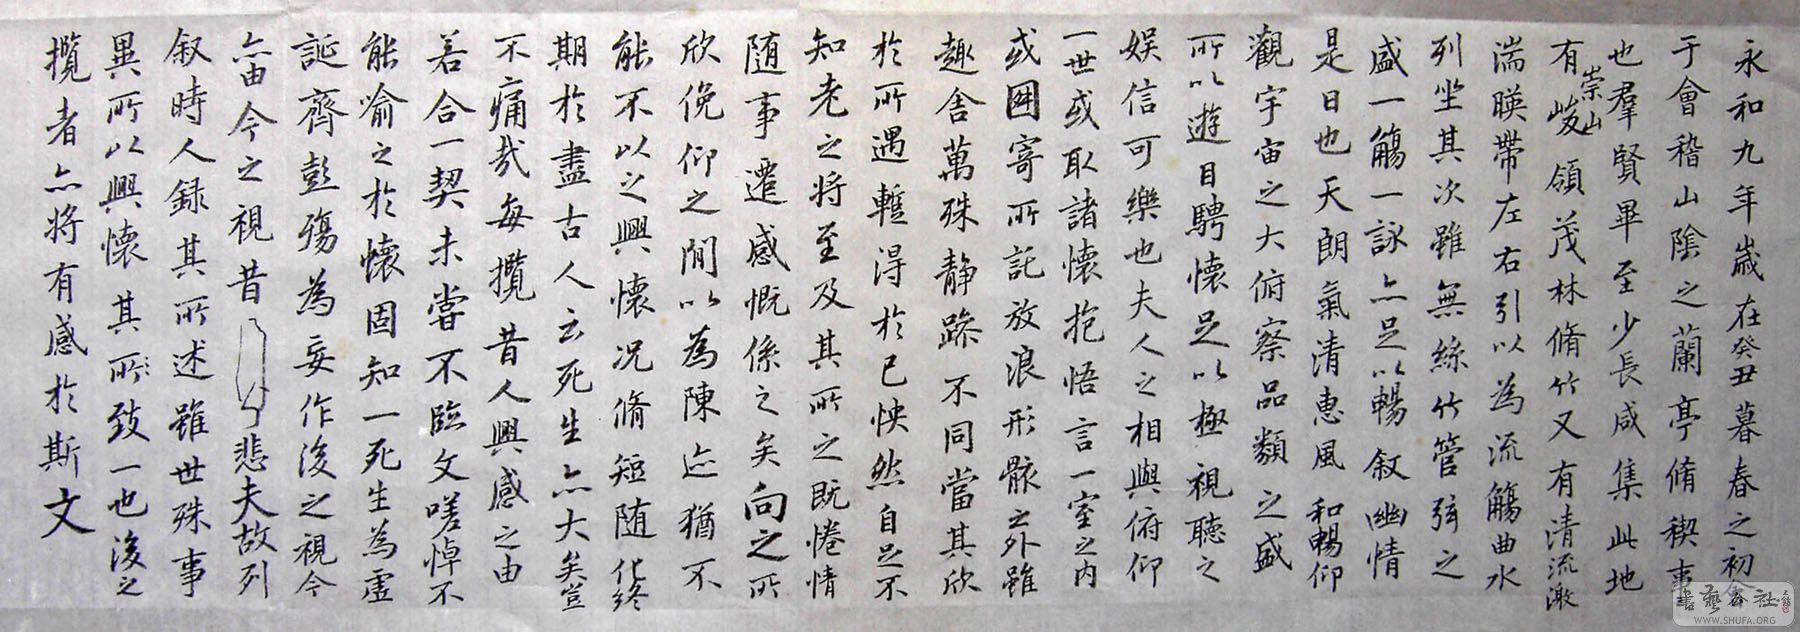 永和九年歲在癸丑暮春之初會
于會稽山陰之蘭亭脩稧事
也羣賢畢至少長咸集此地
有崇山峻領茂林脩竹又有清流激
湍暎帶左右引以為流觴曲水
列坐其次雖無絲竹管弦之
盛一觴一詠亦足以暢叙幽情
是日也天朗氣清惠風和暢仰
觀宇宙之大俯察品類之盛
所以遊目騁懷足以極視聽之
娛信可樂也夫人之相與俯仰
一世或取諸懷抱悟言一室之內
或因寄所託放浪形骸之外雖
趣舍萬殊静躁不同當其欣
於所遇蹔得於己怏然自足不
知老之將至及其所之既惓情
随事遷感慨係之矣向之所
欣俛仰之間以為陳迹猶不
能不以之興懷况脩短随化終
期於盡古人云死生亦大矣豈
不痛哉每攬昔人興感之由
若合一契未嘗不臨文嗟悼不
能喻之於懷固知一死生為虛
誕齊彭殤為妄作後之視今
亦由今之視昔悲夫故列
叙時人録其所述雖世殊事
異所以興懷其所致一也後之
攬者亦將有感於斯文
書藝公社
WWW.SHUFA.ORG